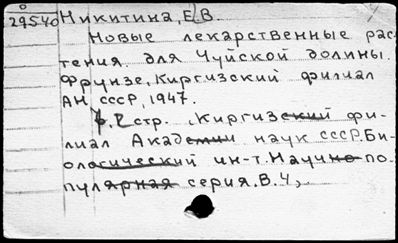 29540 Никитина, Е.В.
Новые лекарственные рас
тения для Чуйской долины.
Фрунзе, Киргизский филиал
АН СССР, 1947.
стр. Киргизский фи-
лиал Академии наук СССР. Би-
ологический ин-т. Научно-по.
пулярная серия. В.Ч,